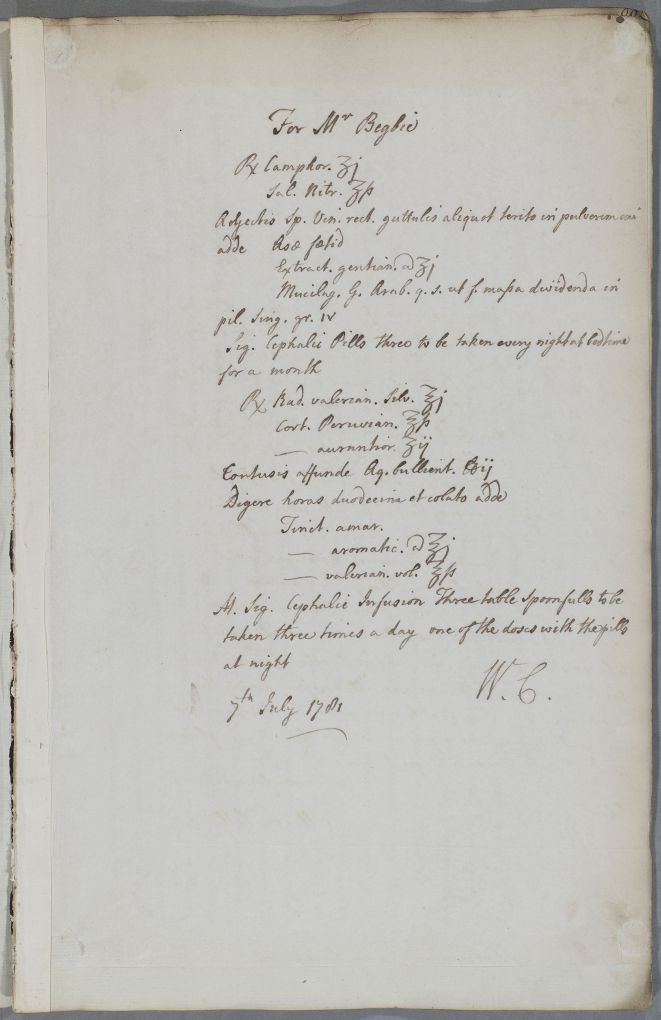 For Mr Begbie
℞ Camphor. ʒj
Sal. Nitr. ʒß
Adjectis Sp. Vin. rect. guttulis aliquot terito in pulverem cui
adde Asæ fœtid
Extract. gentian. a ʒj
Mucilag. G. Arab. q. s. ut f. massa dividenda in
pil. sing. gr. iv
Sig. Cephalic Pills three to be taken every night at bedtime
for a month
℞ Rad. valerian. Silv. ℥j
Cort. Peruvian. ℥ß
— aurantior. ʒij
Contusis affunde Aq. bullient. ℔ij
Digere horas duodecim et colato adde
Tinct. amar.
— aromatic. a ℥j
— valerian. vol. ℥ß
M. Sig. Cephalic Infusion Three table spoonfulls to be
taken three times a day one of the doses with the pills
at night
W. C.
7th July 1781